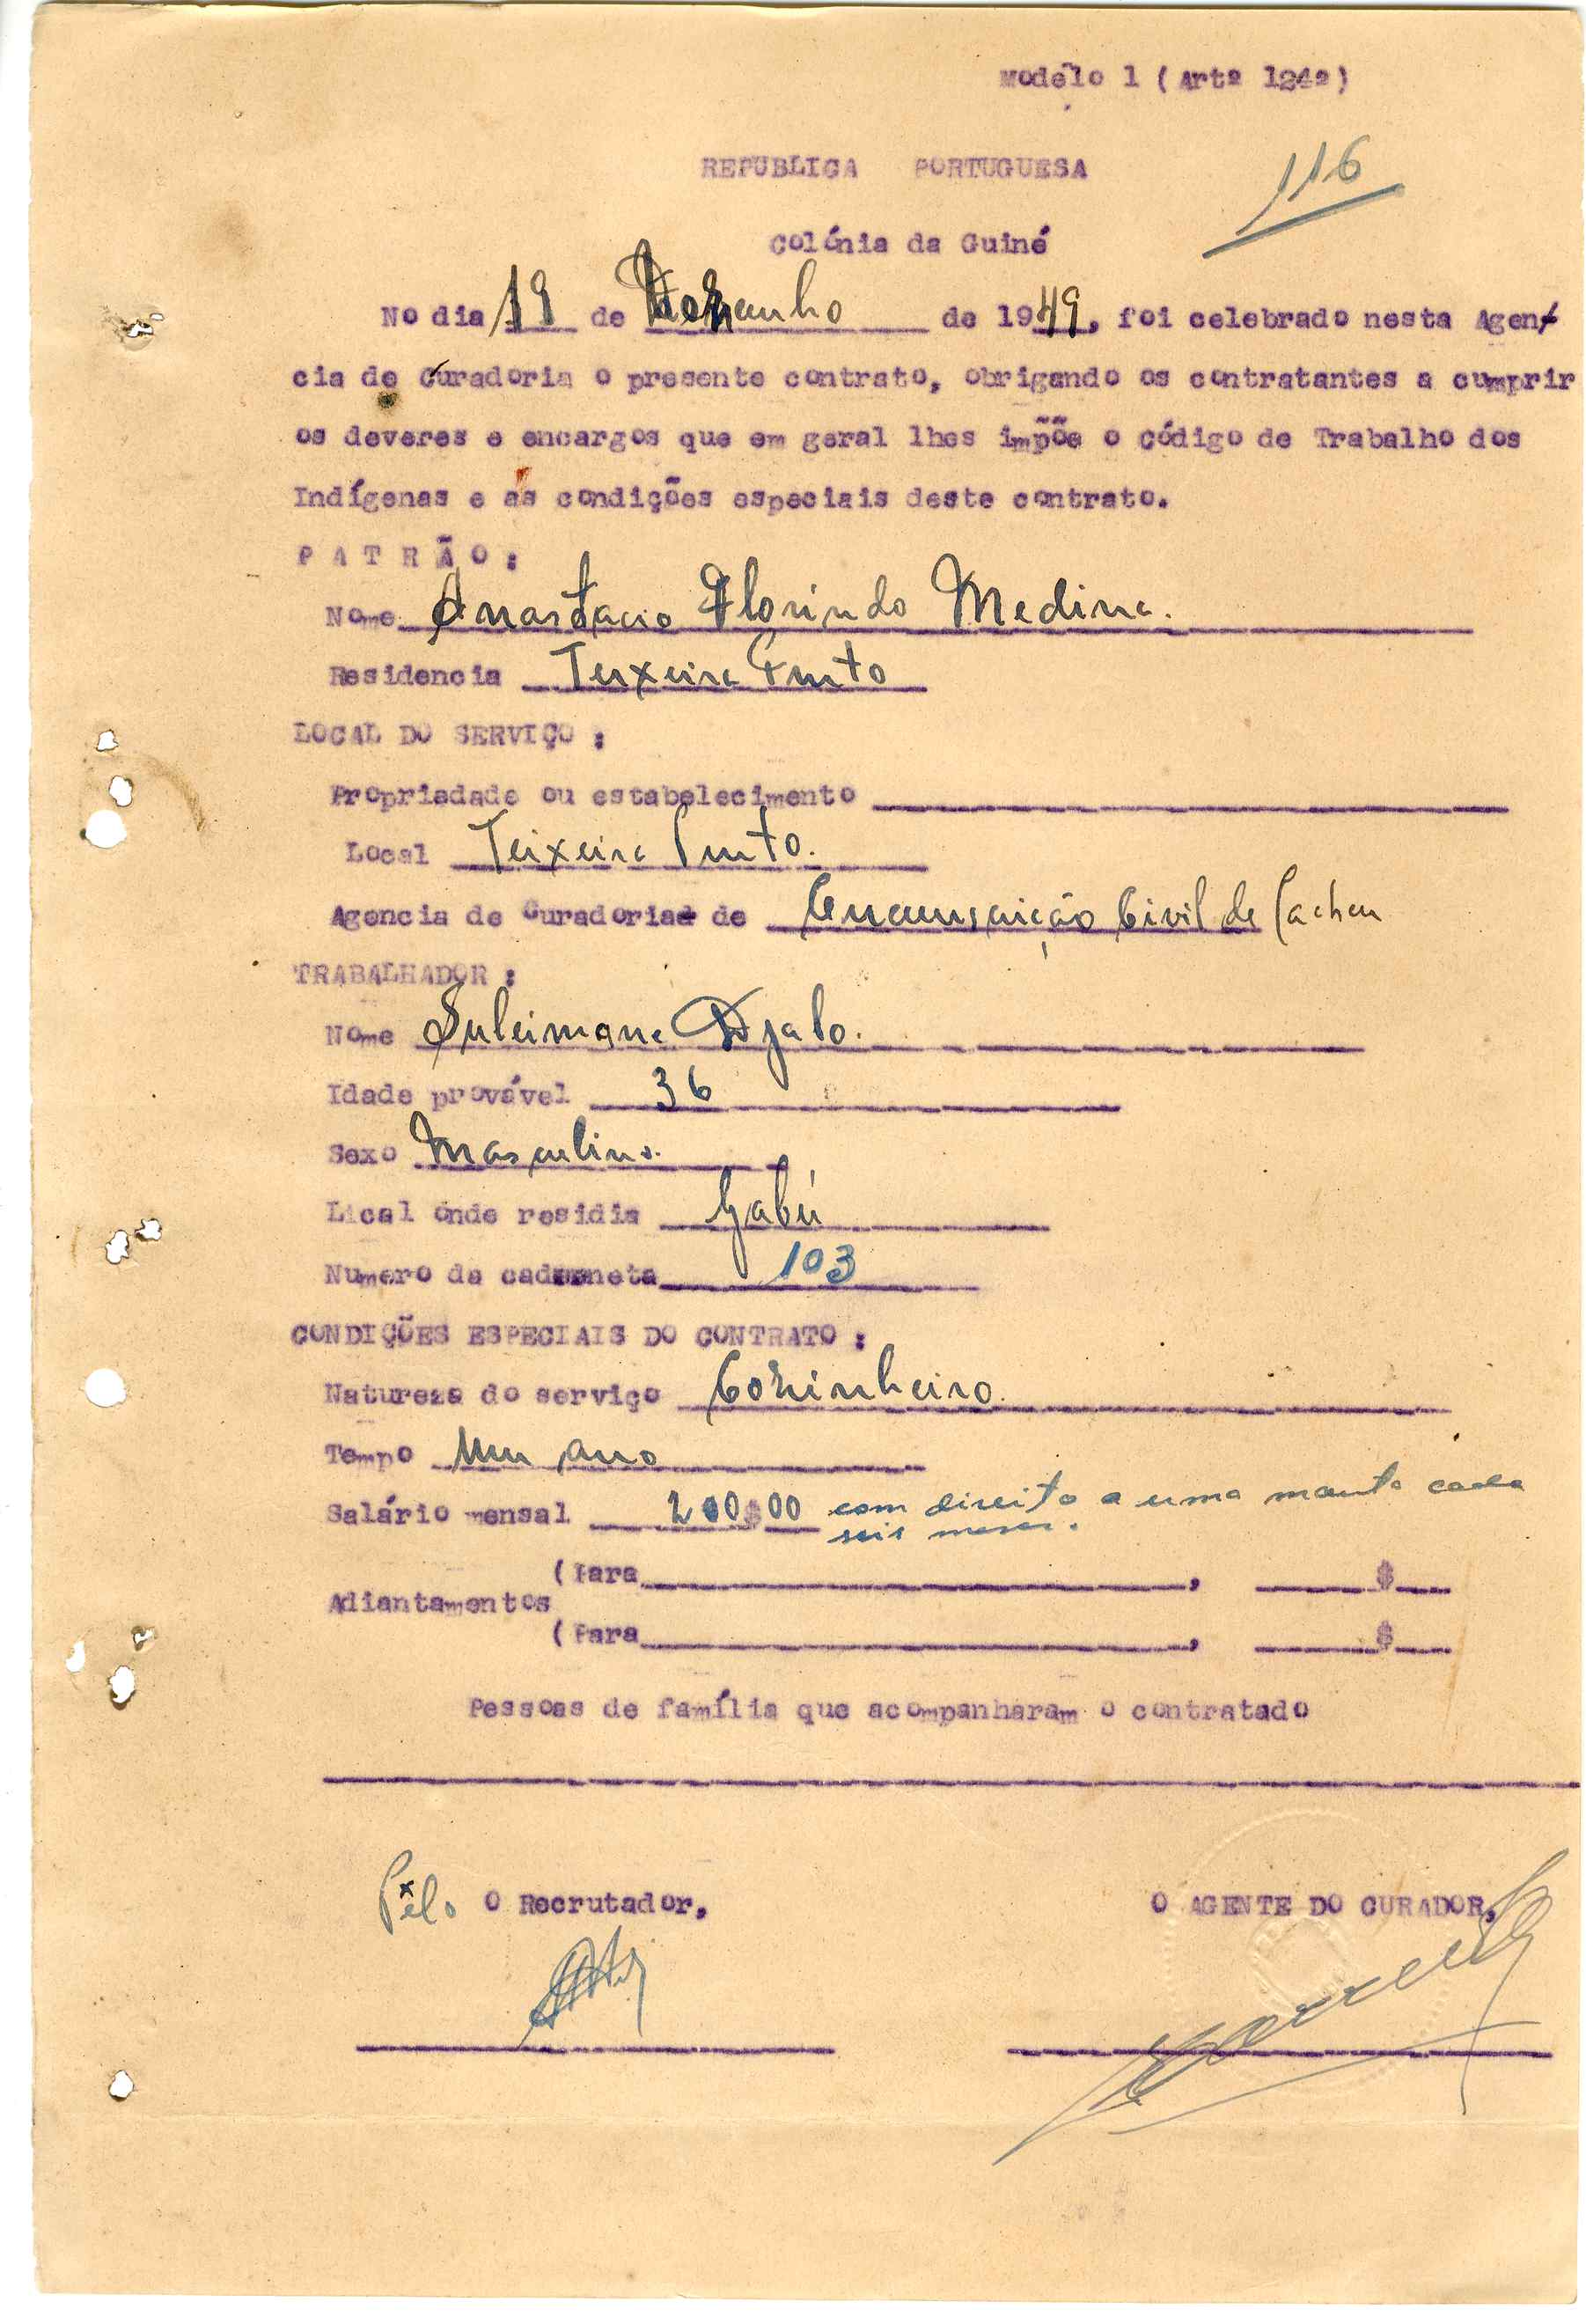 Modêlo 1 (Artº 124º)
REPÚBLICA PORTUGUESA
116
Colónia da Guiné
No dia 19 de de 1949, foi celebrado nesta Agen/
cia de Curadoria o presente contrato, obrigando os contratantes a cumprir
os deveres e encargos que em geral lhes impõe o Código de Trabalho dos
Indígenas e ás condições especiais deste contrato.
PATRÃO:
Nome Anastacio Florindo Medina.
Residencia Teixeira Pinto
LOCAL DO SERVIÇO:
Propriedade ou estabelecimento
Local Teixeira Pinto.
Agencia de Curadoria de Circunscrição Civil de Cacheu
TRABALHADOR:
Nome Suleimane Djalo.
Idade provável 36
Sexo Masculino.
Lical onde residia Gabú
Numero da caderneta 103
CONDIÇÕES ESPECIAIS DO CONTRATO:
Natureza do serviço Cozinheiro.
Tempo Um ano
Salário mensal 200$00 com direito a uma manta cada
seis meses.
(Para , $
Adiantamentos
(Para , $
Pessoas de família que acompanharam o contratado
Pelo O Recrutador,
O AGENTE DO CURADOR,